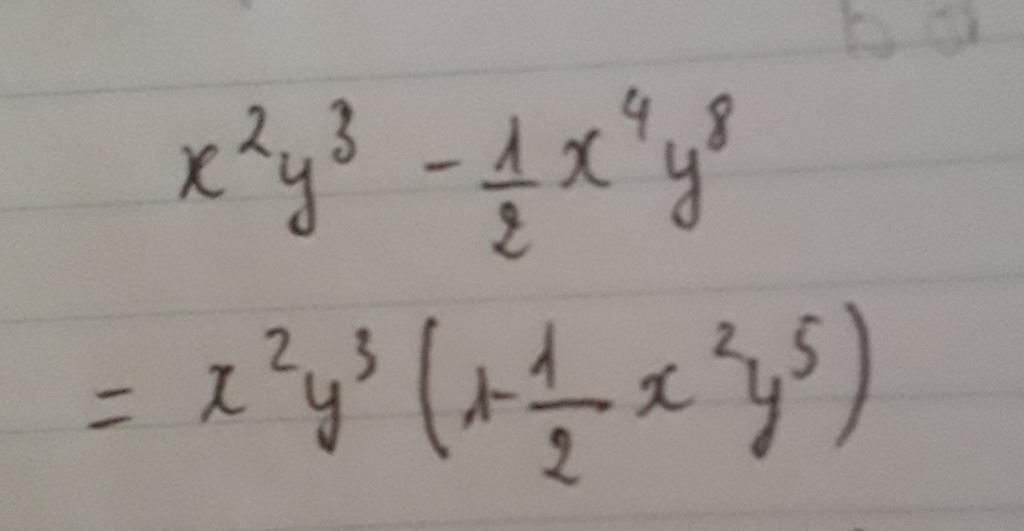 x²y³ - 1/2 x⁴y⁸
= x²y³ (1 - 1/2 x²y⁵)